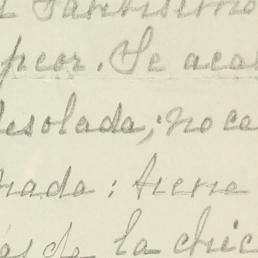 tantísimo
peor. Se aca
desolada; no ca
nada: tiene
ás de la chic